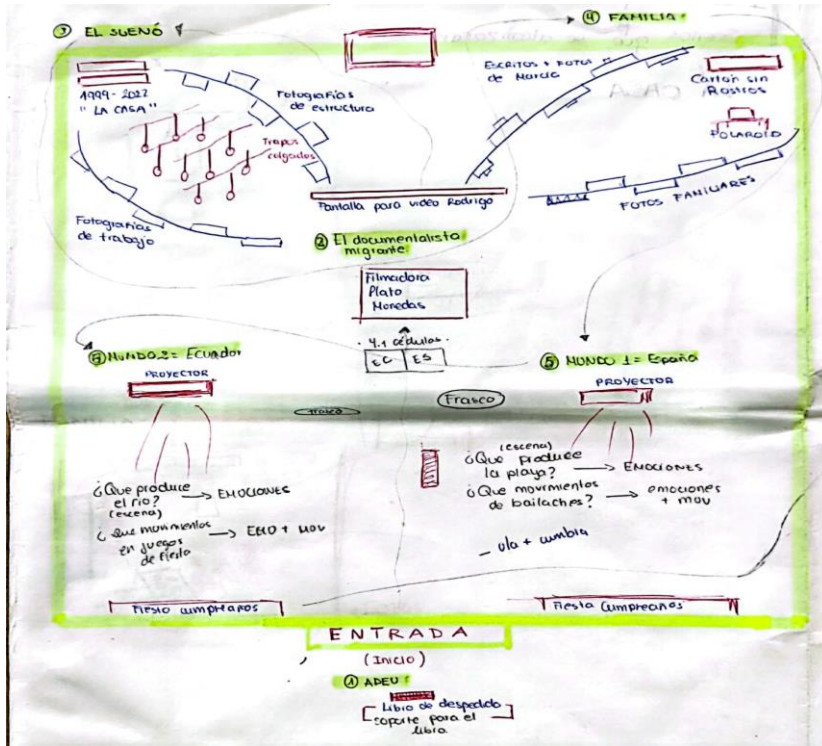 ③ EL SUENÓ
④ FAMILIA:
1999-2022
"LA CASA"
Fotografías
de estructura
Trapos
colgados
Fotografías
de trabajo
ESCRITOS + FOTOS
de Narcia
Cartón sin
Rostros
POLAROID
FOTOS FAMILIARES
Pantalla para video Rodrigo
② El documentalista
migrante
Filmadora
Plato
Monedas
4.1 cédulas.
EC ES
⑤ MUNDO 2= Ecuador
PROYECTOR
⑤ MUNDO 1= España
PROYECTOR
frasco
Frasco
¿Que produce
el río?
(escena)
→ EMOCIONES
¿Que movimientos
en juegos
de fiesta
→ EMO + MOV
(escena)
¿Que produce
la playa?
→ EMOCIONES
¿Que movimientos
de bailaches?
→ emociones
+ mov
- ula + cumbia
Fiesta cumpleaños
Fiesta cumpleaños
ENTRADA
(Inicio)
① ADEU:
Libro de despedida
soporte para el
libro.